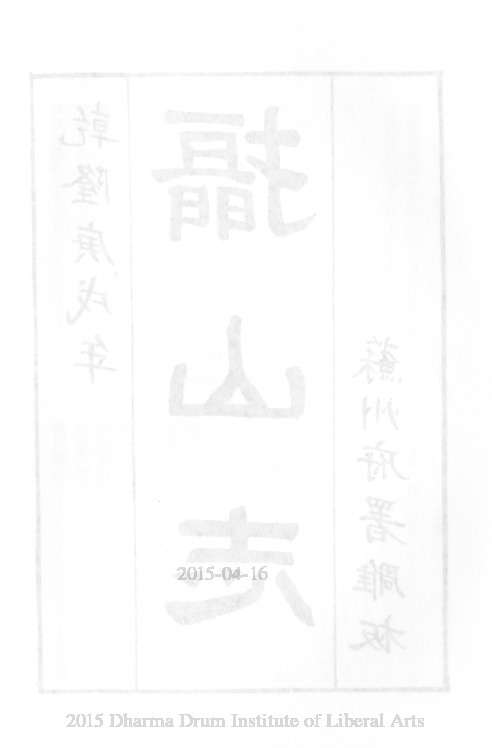 乾隆庚戌年
攝山志
蘇州府署雕板
2015-04-16
2015 Dharma Drum Institute of Liberal Arts